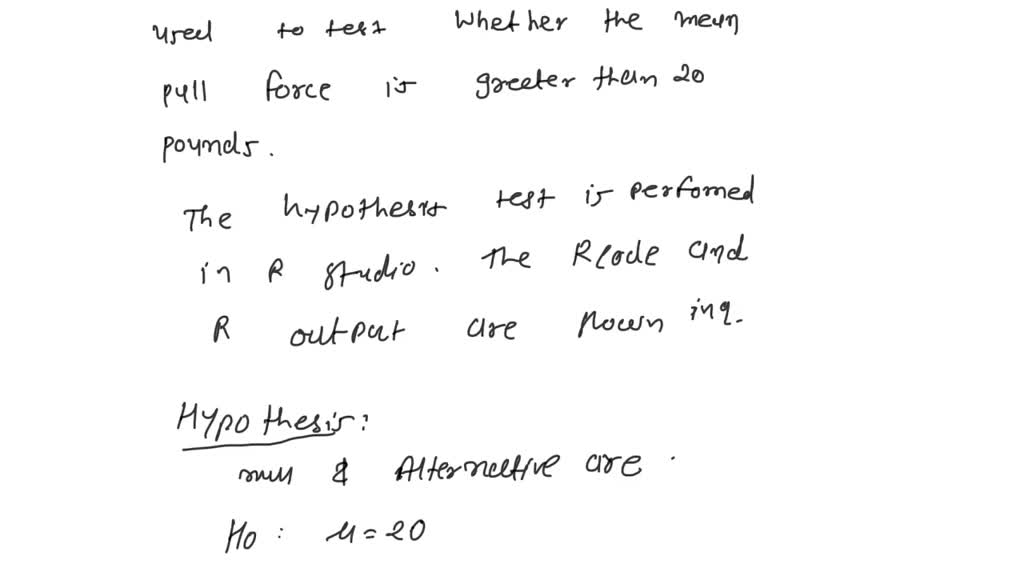 used to test whether the mean
pull force is greeter than 20
pounds.
The hypothesis test is perfomed
in R studio. The R code and
R output are
Hypothesis:
null & Alternative are.
Ho: μ = 20